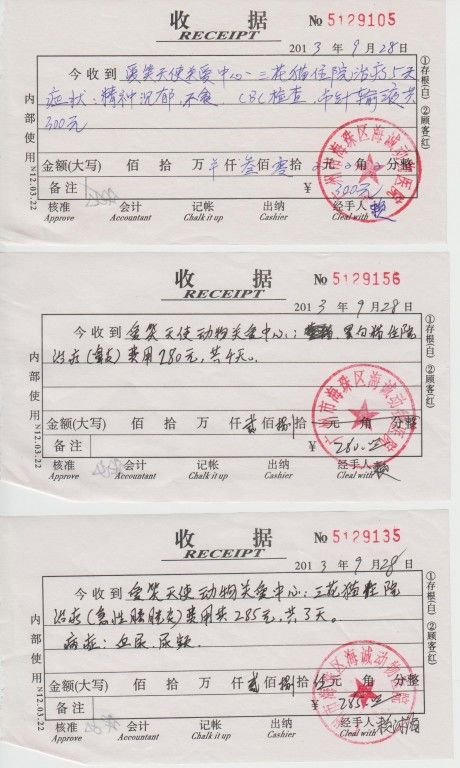 收 据
RECEIPT
No 5129105
2013 年 9 月 28 日
今收到 爱笑天使关爱中心、三花猫住院治疗5天
症状：精神沉郁，不食 CBC检查，留针输液共
300元
金额(大写) 佰 拾 万 仟 叁佰 零拾 元 角 分整
备 注
¥ 300元
核准 会计 记帐 出纳 经手人
Approve Accountant Chalk it up Cashier Cleal with
内部使用 N12.03.22
①存根(白) ②顾客(红)
州市海珠区海诚动物医院
收 据
RECEIPT
No 5129156
2013 年 9 月 28 日
今收到 爱笑天使动物关爱中心：黑白猫住院
治疗 费用280元，共4天。
金额(大写) 佰 拾 万 仟 贰佰 捌拾 元 角 分整
备 注
¥ 280.
核准 会计 记帐 出纳 经手人
Approve Accountant Chalk it up Cashier Cleal with
内部使用 N12.03.22
①存根(白) ②顾客(红)
市海珠区海诚动物医院
收 据
RECEIPT
No 5129135
2013 年 9 月 28 日
今收到 爱笑天使动物关爱中心：三花猫住院
治疗(急性膀胱炎)费用共285元，共3天。
病症：血尿、尿频
金额(大写) 佰 拾 万 仟 贰佰 捌拾 伍元 角 分整
备 注
¥ 285.
核准 会计 记帐 出纳 经手人
Approve Accountant Chalk it up Cashier Cleal with
内部使用 N12.03.22
①存根(白) ②顾客(红)
市海珠区海诚动物医院